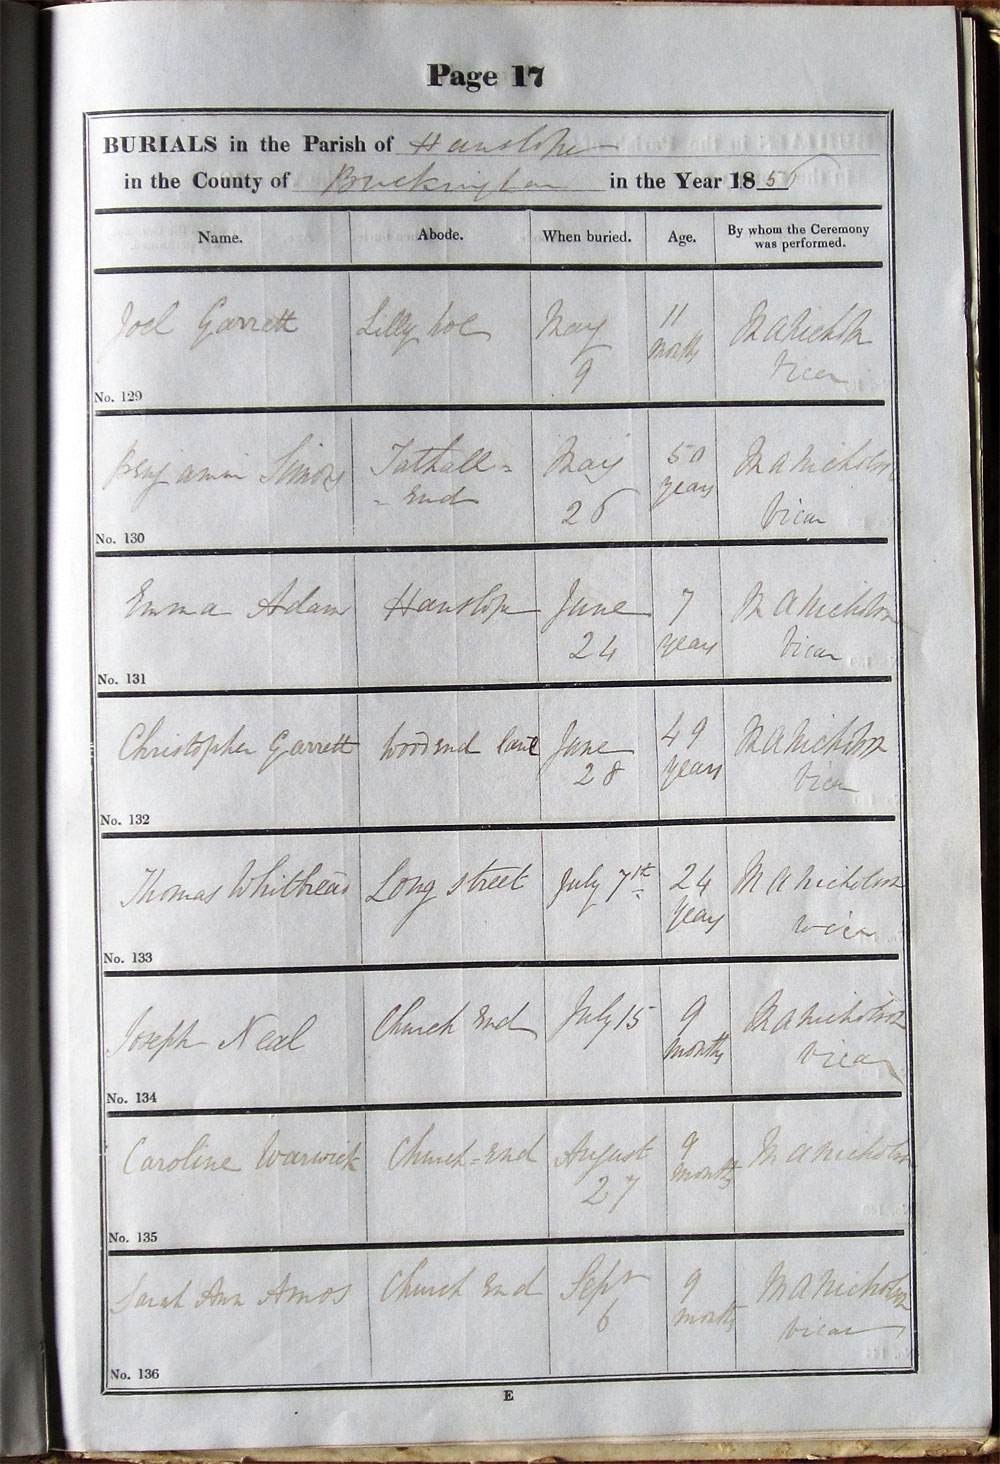 Page 17
BURIALS in the Parish of Hanslope
in the County of Buckingham in the Year 1856
Name. Abode. When buried. Age. By whom the Ceremony
was performed.
Joel Garrett Lilly hoe May 11 M A Nicholson
9 months Vicar
No. 129
Benjamin Simons Tathall= May 50 M A Nicholson
= End 26 years Vicar
No. 130
Emma Adam Hanslope June 7 M A Nicholson
24 years Vicar
No. 131
Christopher Garrett Woodend lane June 49 M A Nicholson
28 years Vicar
No. 132
Thomas Whitbread Long street July 7th 24 M A Nicholson
years Vicar
No. 133
Joseph Neal Church End July 15 9 M A Nicholson
months Vicar
No. 134
Caroline Warwick Church=End August 9 M A Nicholson
27 months
No. 135
Sarah Ann Amos Church End Sepr 9 M A Nicholson
6 months Vicar
No. 136
E